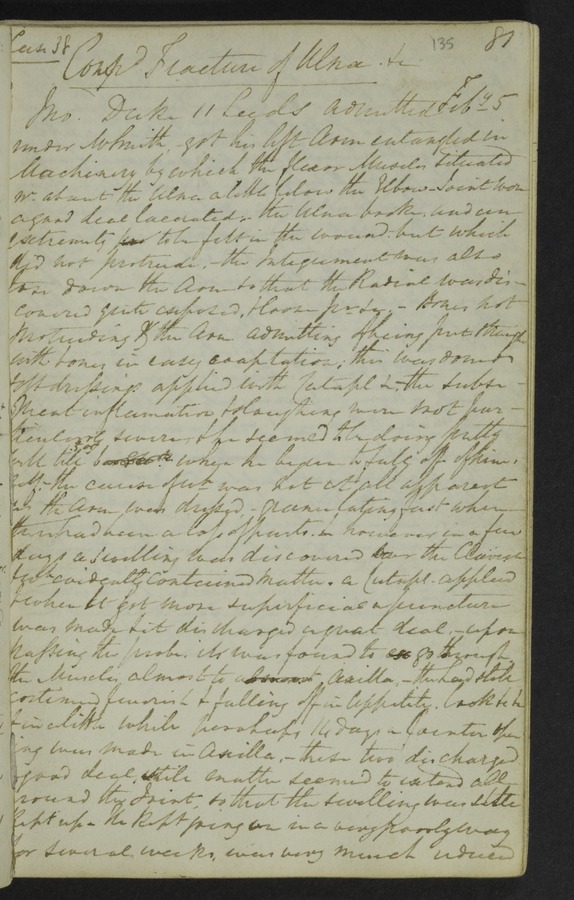 Case 38 135 81
Comp.d Fracture of Ulna &c
Jno. Duke 11 Leeds admitted Feb 25
under Mr Smith, got his left Arm entangled in
Machinery by which the flexor Muscles situated
or about the Ulna a little below the Elbow-Joint were
a good deal lacerated, the Ulna broke, and an
extremity to be felt in the wound but which
did not protrude, - the integument was also
torn down the Arm so that the Radial was dis-
covered quite exposed, - Bones not
protruding & the Arm admitting of being put through
with bones in easy coaptation; this was done &
soft dressings applied with Catapl &c, the subse-
quent inflammation & sloughing were not par-
ticularly severe, & he seemed to be doing pretty
well till when he began to fall off of him-
self, - the cause of it was not at all apparent
as the Arm was dressed, - granulating just where
there had been a loss of parts. - however in a few
days a swelling was discovered over the Clavicle
evidently contained matter. a Catapl. applied
& when it got more superficial a puncture
was made & it discharged a great deal, - upon
passing the probe it was found to go through
the Muscles almost to Axilla, - the lad still
continued feverish & falling off in appetite, looks &c &c
in a little while perhaps 14 days a Counter open-
ing was made in Axilla, - these two discharged
a good deal, still matter seemed to extend all
round the Joint, so that the swelling was little
kept up - He kept going on in a very poorly way
for several weeks, was very much reduced